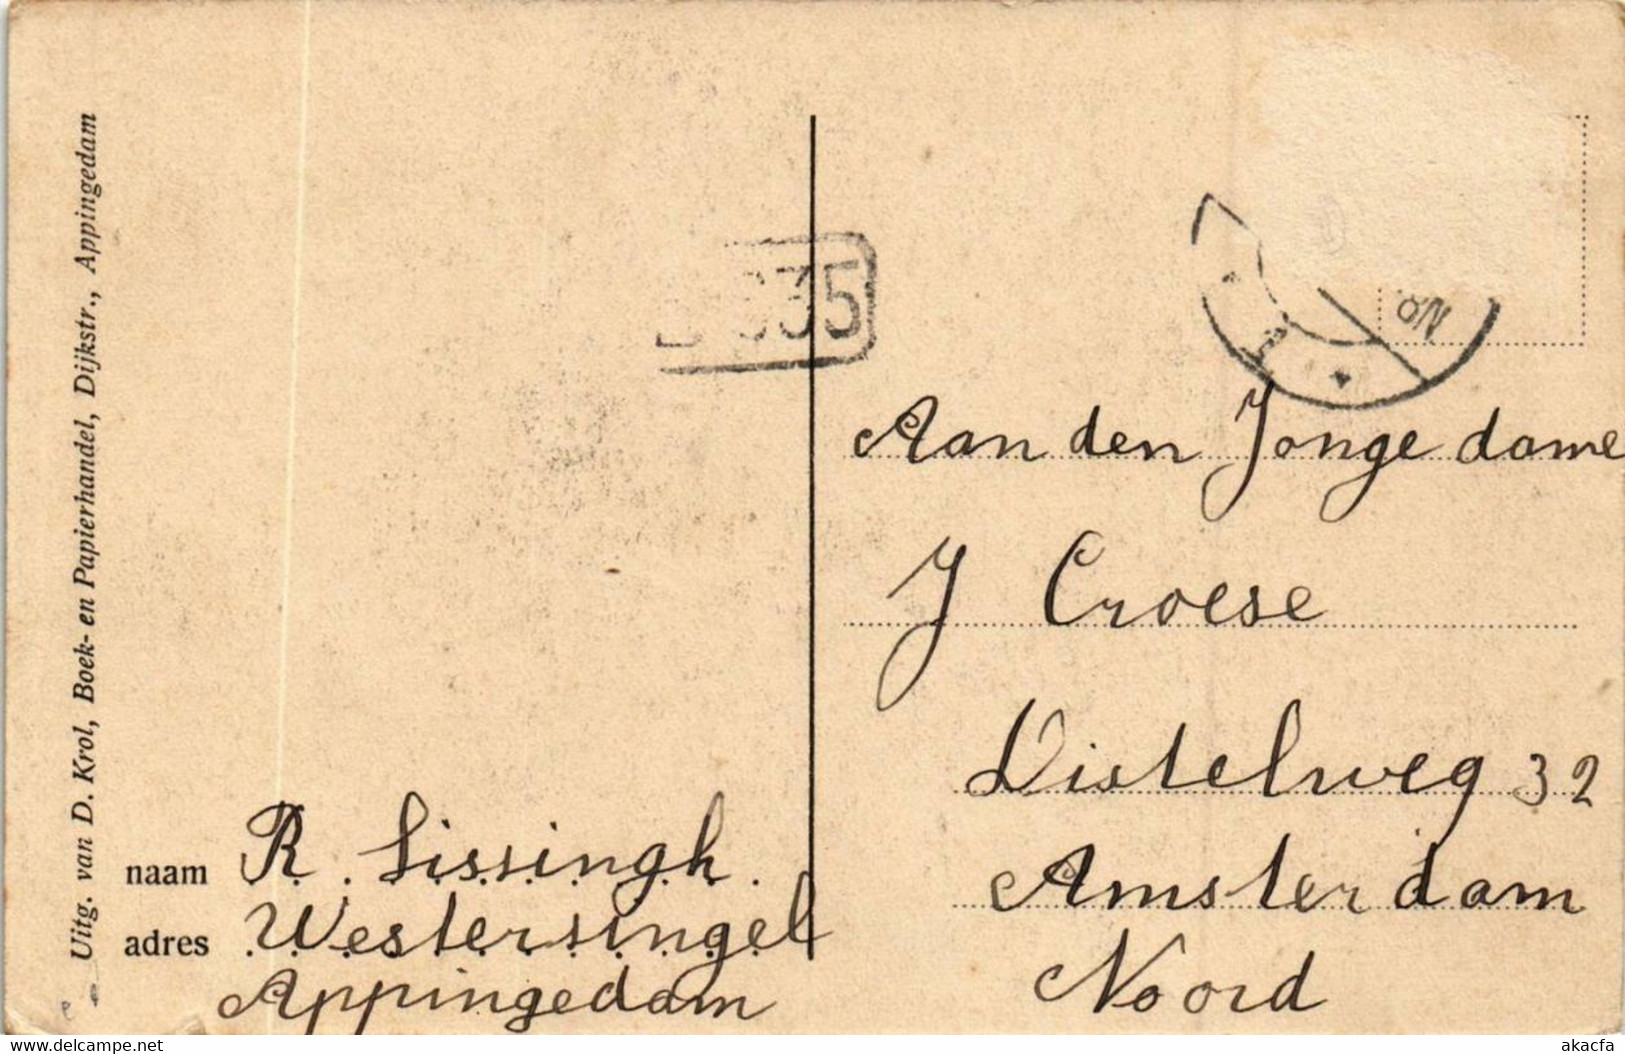 Uitg. van D. Krol, Boek- en Papierhandel, Dijkstr., Appingedam
35
No
Aan den Jonge dame
J Croese
Distelweg 32
Amsterdam
Noord
naam R. Sissingh.
adres Westersingel
Appingedam
www.delcampe.net
akacfa